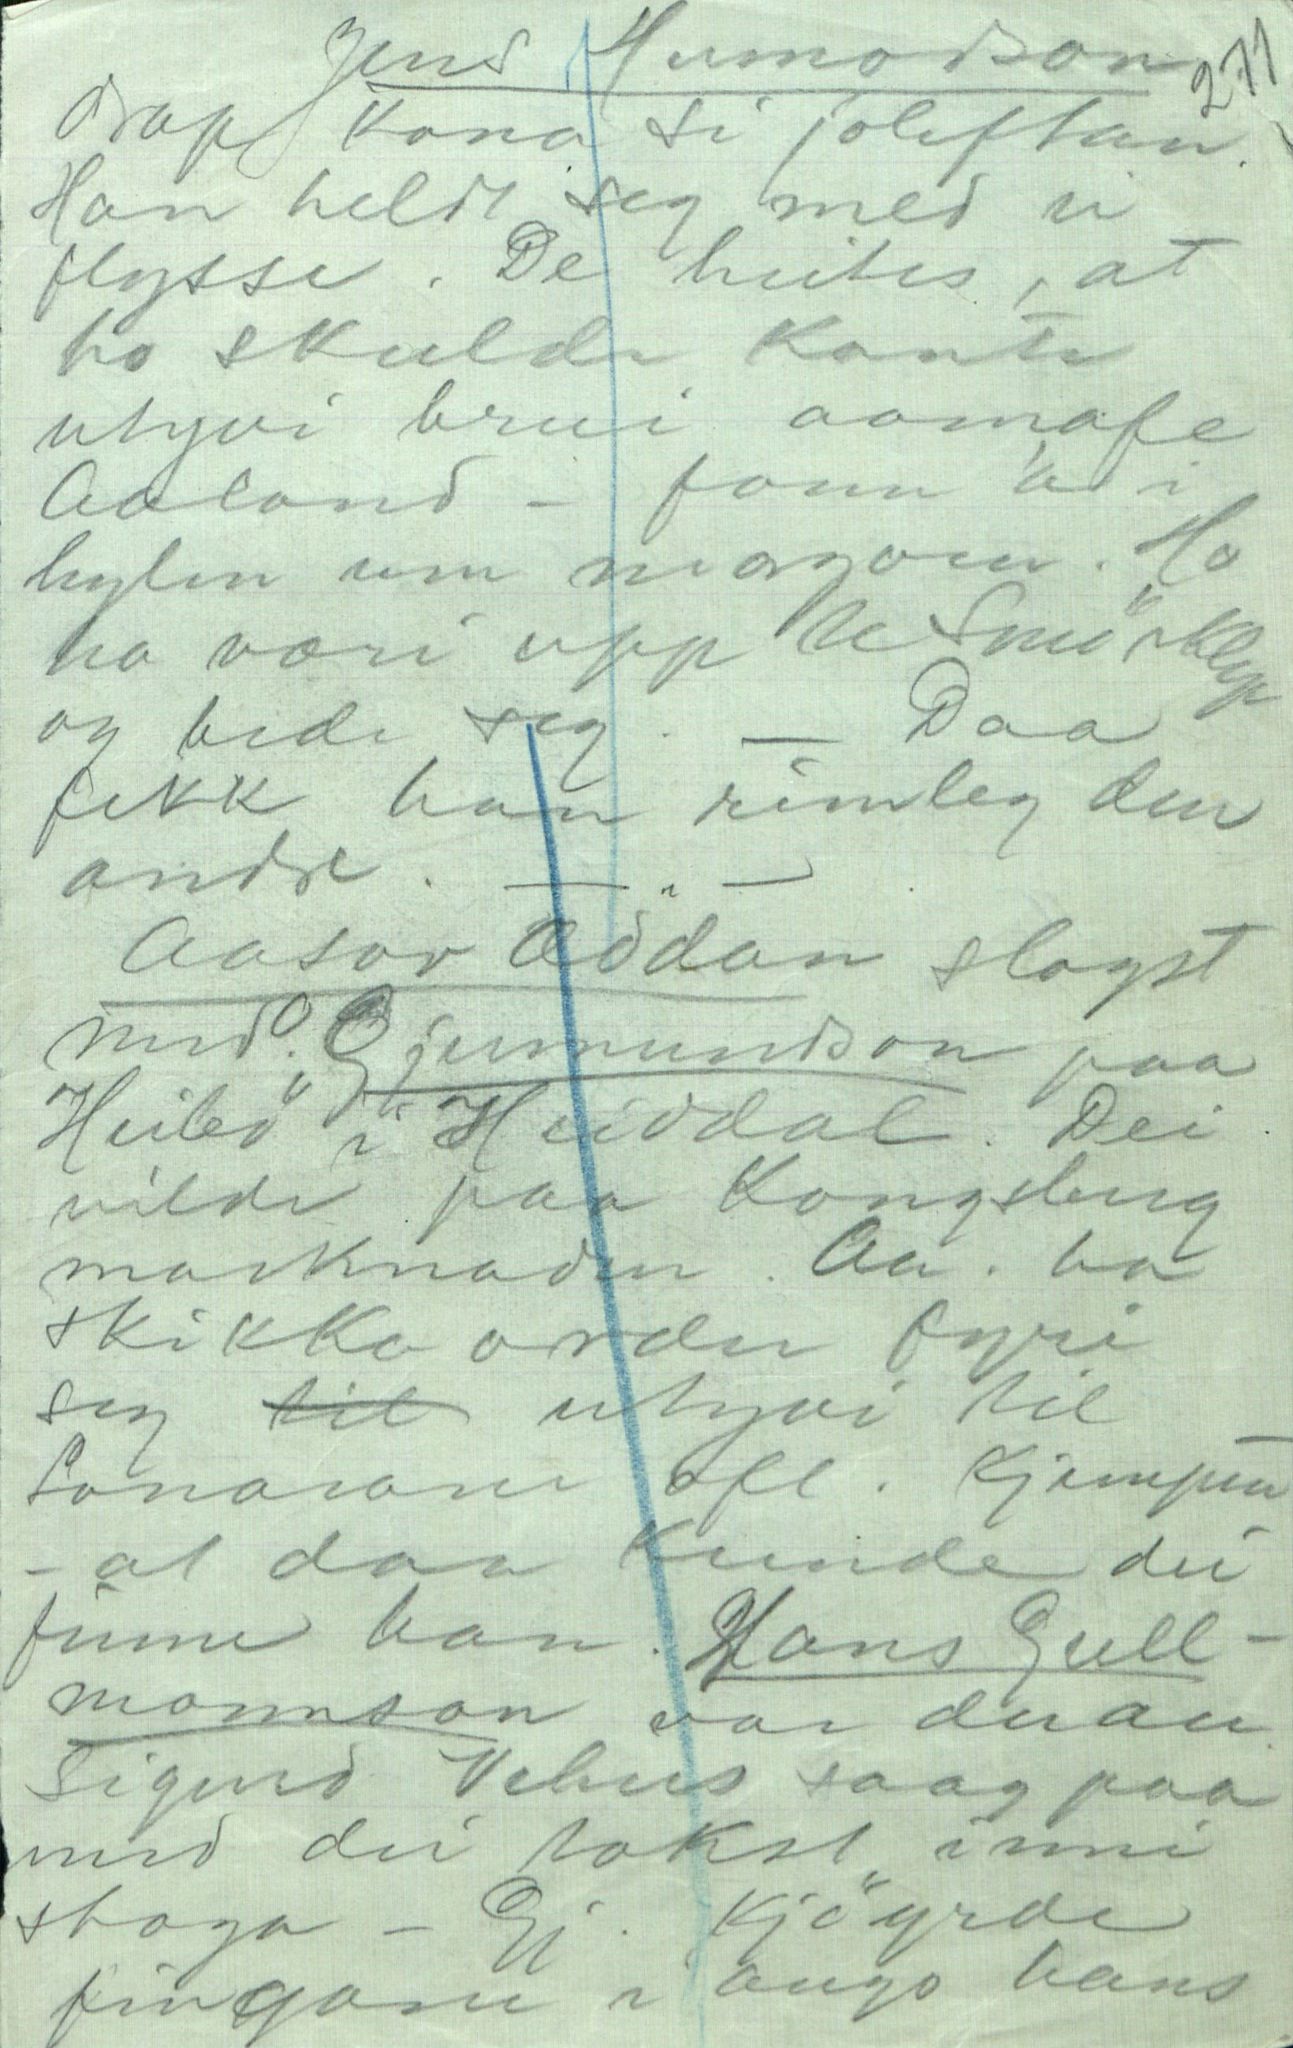 271
Jens Humodson
drap kona si joleftan.
Han heldt seg med ei
flysse. De heites, at
ho skulde kante
utyvi brui aamafe
Aaland - fonn 'a i
hylen um morgonen. Ho
ha vori upp te Smörklep
og bede seg. — Daa
fekk han rimleg den
andre. — " —
Aasov Øddan slogst
med. Gjermundson paa
Heibö i Heiddal. Dei
vilde paa Kongsberg
marknaden. Aa. ha
skikka orden fyri
seg til utyvi til
ofl. Kjempun
- at daa kunde dei
finne han. Hans Gull-
mannson var deran.
Sigurd Vehus saag paa
med dei tokst inni
stoga - Gj. Kjöyrde
fingane i augo hans